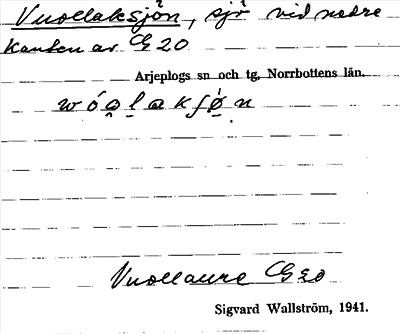 Vuollaksjön, sjö vid nedre
kanten av G 20
Arjeplogs sn och tg, Norrbottens län.
wóa̭l̲a̲kʃo̭n
Vuollaure G 20
Sigvard Wallström, 1941.